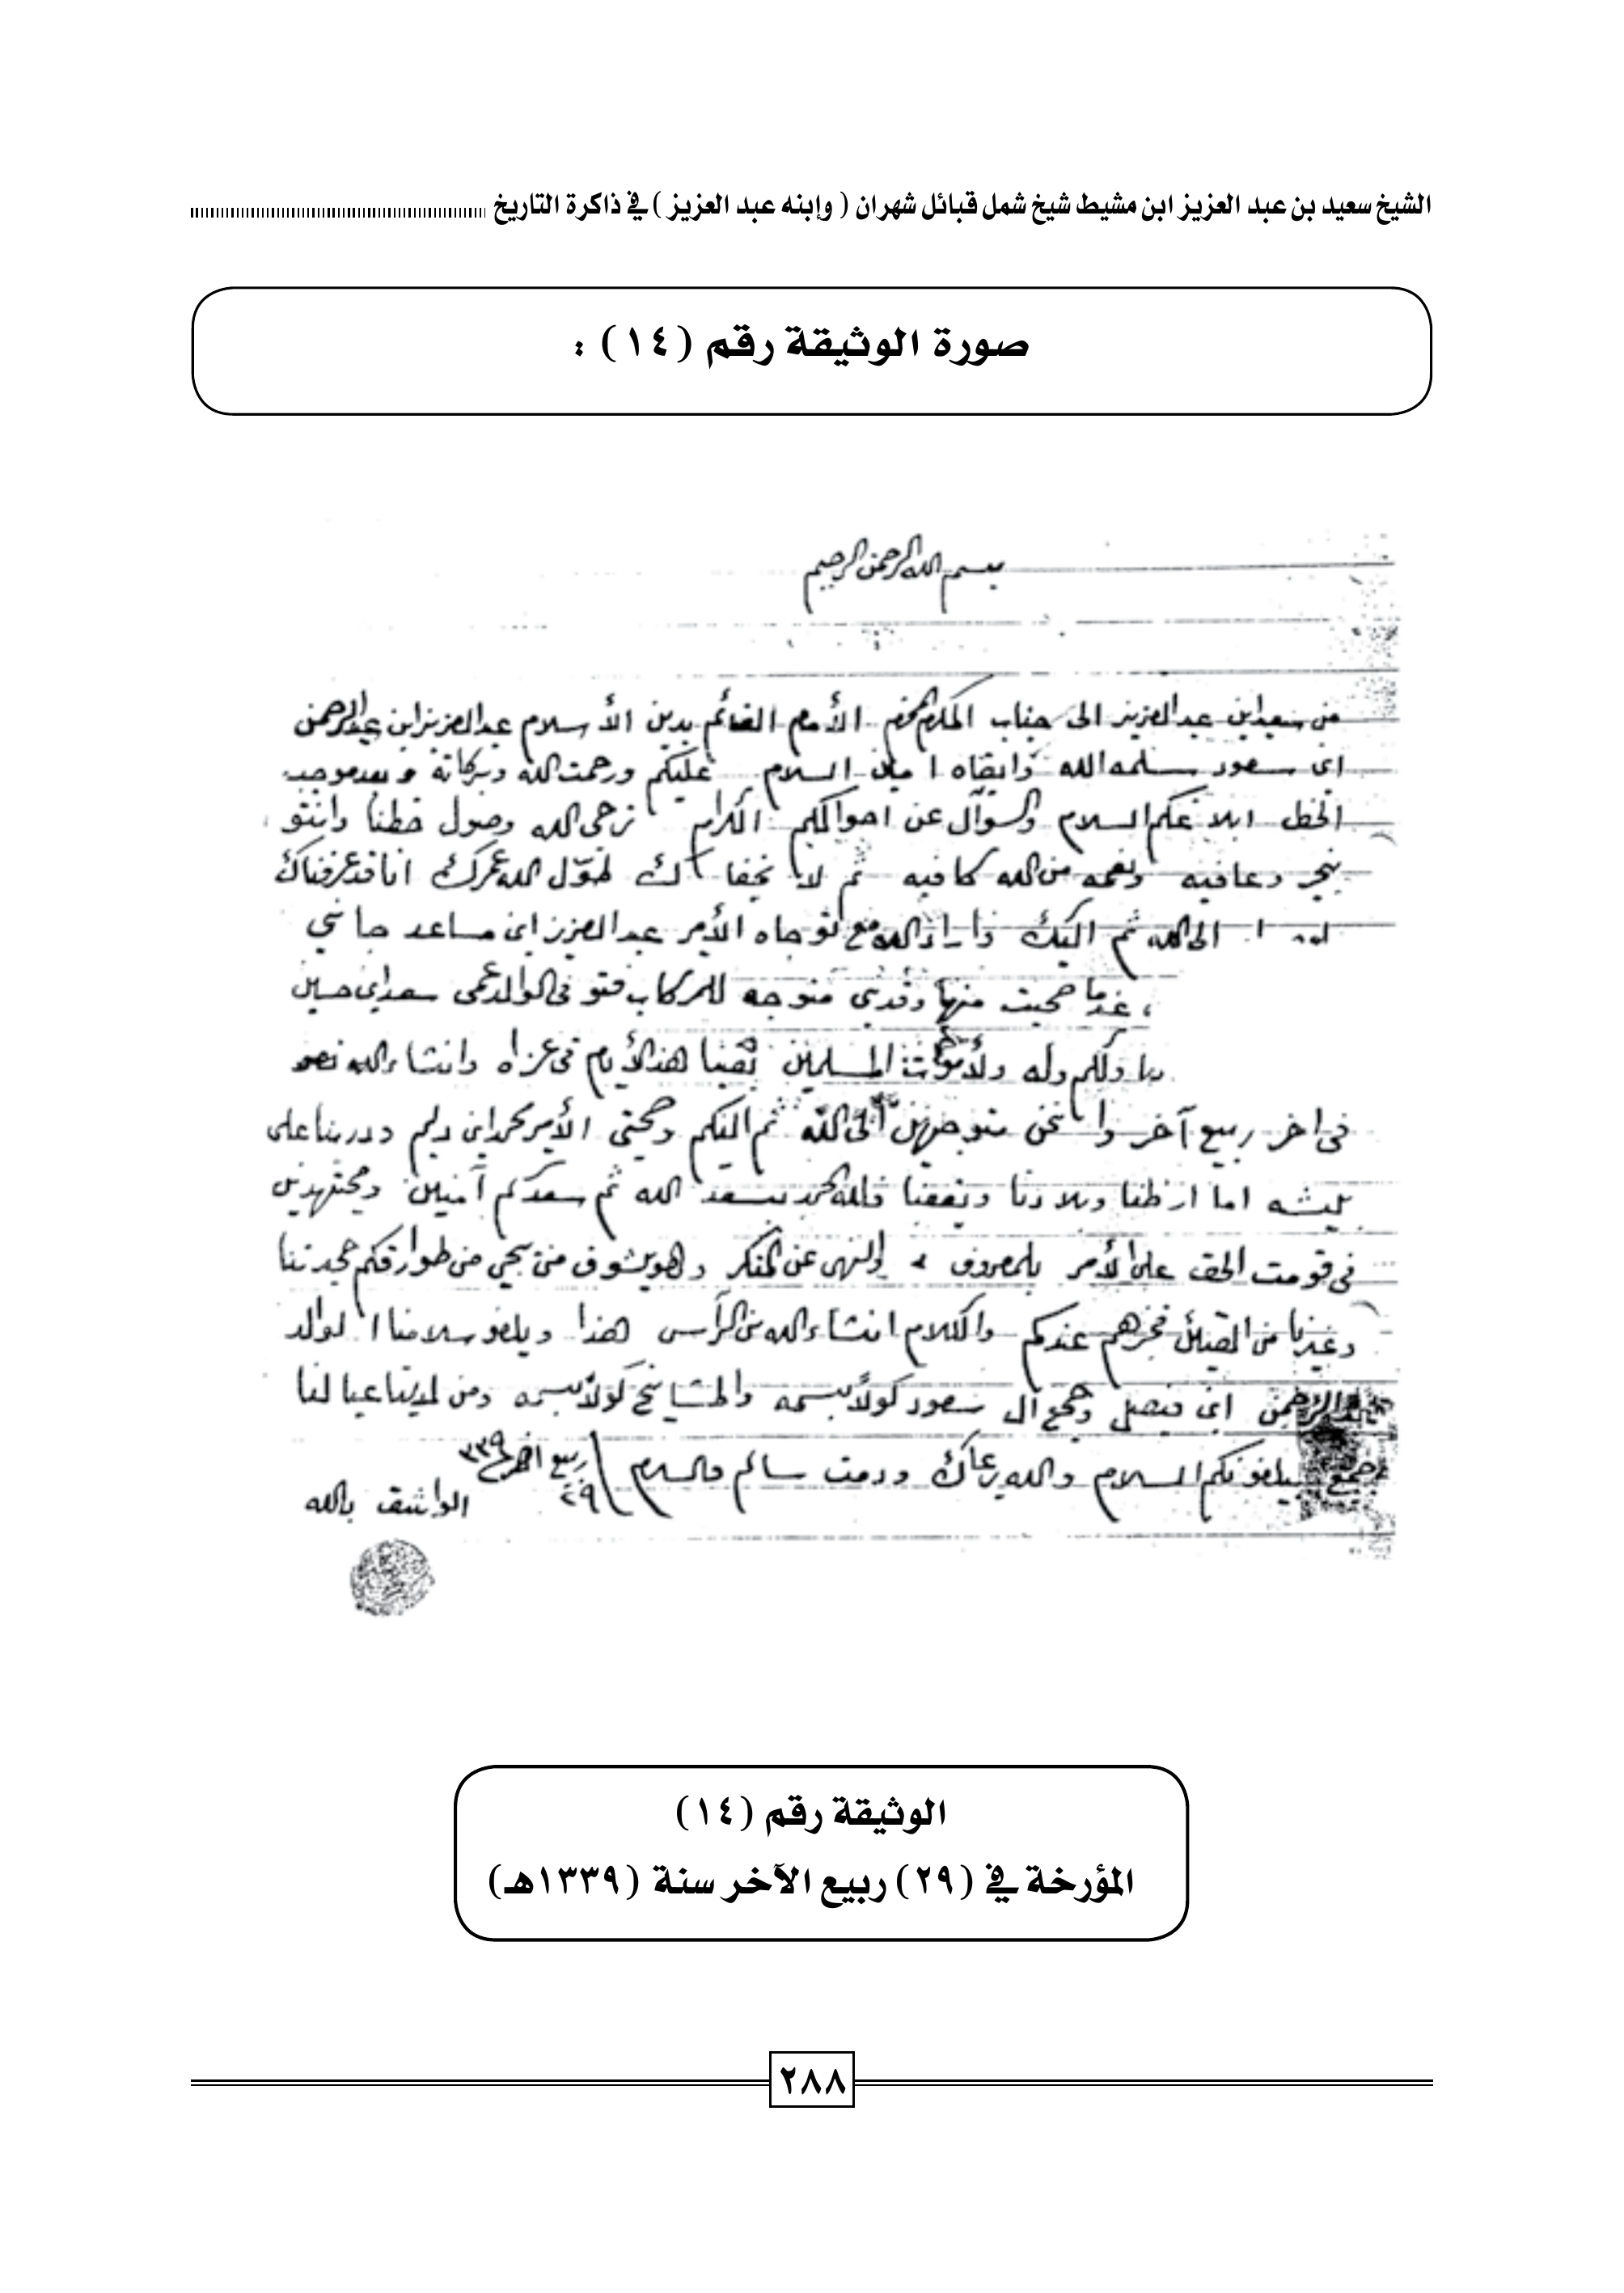 الشيخ سعيد بن عبد العزيز ابن مشيط شيخ شمل قبائل شهران ( وإبنه عبد العزيز ) في ذاكرة التاريخ
صورة الوثيقة رقم (١٤) :
بسم الله الرحمن الرحيم
من سعيد ابن عبد العزيز الى جناب المكرم المحترم الأمام القائم بدين الأسلام عبد العزيز ابن عبد الرحمن
ابن سعود سلمه الله وابقاه امين السلام عليكم ورحمت الله وبركاته وبعد موجب
الخط ابلاغكم السلام والسوآل عن احوالكم الكرام نرجى الله وصول خطنا وانتو
بخير وعافيه ونعمه من الله كافيه ثم لا يخفا ك طوّل الله عمرك انا قد عرفناك
الى الله ثم اليك واراد الله مع توجاه الأمير عبد العزيز ابن مساعد جاني
ما صحيت منها وقدني متوجه للركاب فتوفى الوالد عمي سعد ابن حسين
ولكم وله ولأموات المسلمين بقينا هذ الأيام في عزاه وانشاء الله
في اخر ربيع آخر وا نحن متوجهين الى الله ثم اليكم وصحبتي الأمير محمد ابن دليم ودربنا على
بيشه اما ارظنا وبلادنا ونفعنا فلله الحمد بسعد الله ثم سعدكم آمنين ومجتهدين
في قومت الحق على الأمر بلمعروف والنهى عن المنكر وهو يشوف من يجي من طوارقكم
وغيرنا من القبايل فخبرهم عندكم والكلام انشاء الله من الرآس هذا ويلغو سلامنا الوالد
عبد الرحمن ابن فيصل وجميع ال سعود كولاً بسمه والمشايخ كولاً بسمه ومن لدينا عيالنا
جميع يبلغونكم السلام والله يرعاك ودمت سالم والسلام ٢٩ ربيع اخر ٣٣٩
الواثق بالله
الوثيقة رقم (١٤)
المؤرخة في (٢٩) ربيع الآخر سنة (١٣٣٩هـ)
٢٨٨